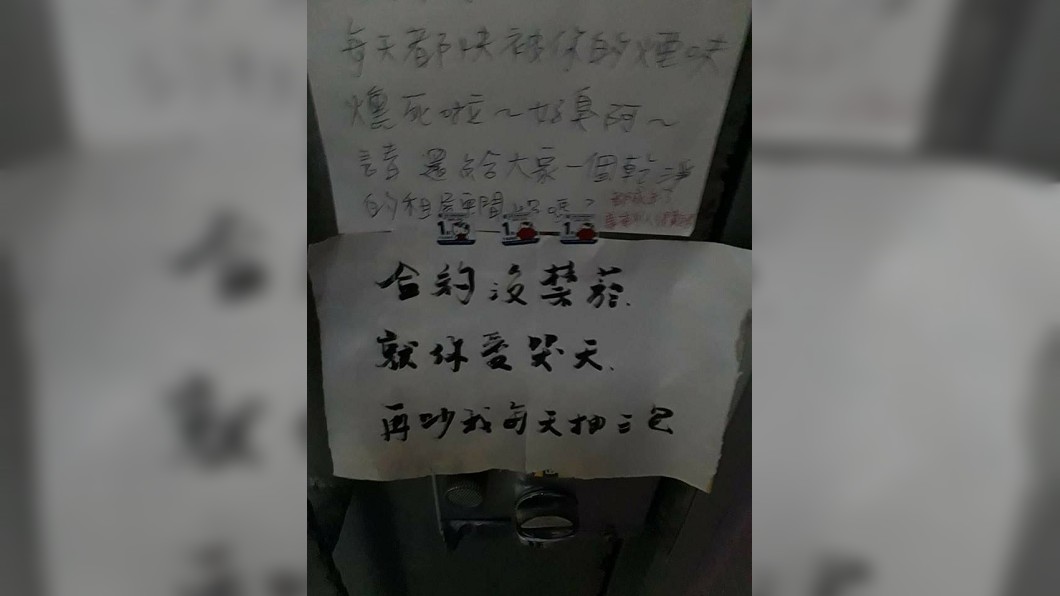 每天都快被你的煙味
燻死啦～好臭阿～
請還給大家一個乾淨
的租屋空間好嗎?
合約沒禁菸.
就你愛哭夭.
再吵我每天抽三包